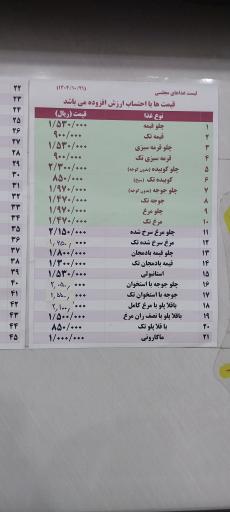 لیست غذاهای مجلسی (۱۴۰۴/۱۰/۲۱)
قیمت ها با احتساب ارزش افزوده می باشد
نوع غذا قیمت (ریال)
۱ چلو قیمه ۱/۵۳۰/۰۰۰
۲ قیمه تک ۹۰۰/۰۰۰
۳ چلو قرمه سبزی ۱/۵۳۰/۰۰۰
۴ قرمه سبزی تک ۹۰۰/۰۰۰
۵ چلو کوبیده (بدون گوجه) ۲/۳۰۰/۰۰۰
۶ کوبیده تک (سیخ) ۸۵۰/۰۰۰
۷ چلو جوجه (بدون گوجه) ۱/۹۷۰/۰۰۰
۸ جوجه تک ۱/۴۷۰/۰۰۰
۹ چلو مرغ ۱/۹۷۰/۰۰۰
۱۰ مرغ تک ۱/۴۷۰/۰۰۰
۱۱ چلو مرغ سرخ شده ۲/۱۵۰/۰۰۰
۱۲ مرغ سرخ شده تک
۱۳ چلو قیمه بادمجان ۱/۸۰۰/۰۰۰
۱۴ قیمه بادمجان تک ۱/۳۰۰/۰۰۰
۱۵ استانبولی ۱/۵۳۰/۰۰۰
۱۶ چلو جوجه با استخوان
۱۷ جوجه با استخوان تک
۱۸ باقلا پلو با مرغ کامل
۱۹ باقلا پلو با نصف ران مرغ ۱/۵۰۰/۰۰۰
۲۰ باقلا پلو تک ۸۵۰/۰۰۰
۲۱ ماکارونی ۱/۰۰۰/۰۰۰
۲۲
۲۳
۲۴
۲۵
۲۶
۲۷
۲۸
۲۹
۳۰
۳۱
۳۲
۳۳
۳۴
۳۵
۳۶
۳۷
۳۸
۳۹
۴۰
۴۱
۴۲
۴۳
۴۴
۴۵